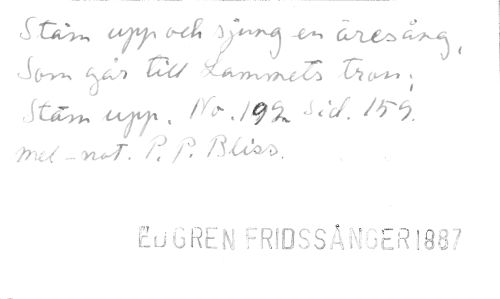 Stäm upp och sjung en äresång,
Som går till Lammets tron;
Stäm upp. No. 192 Sid. 159.
mel-not. P. P. Bliss.
EDGREN FRIDSSÅNGER 1887